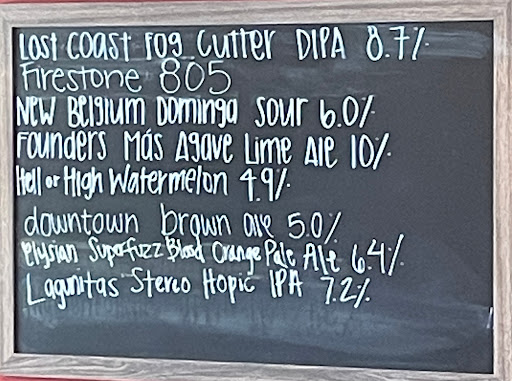 Lost Coast Fog Cutter DIPA 8.7%
Firestone 805
New Belgium Dominga Sour 6.0%
Founders Más Agave Lime Ale 10%
Hell or High Watermelon 4.9%
downtown brown ale 5.0%
Elysian Superfuzz Blood Orange Pale Ale 6.4%
Lagunitas Stereo Hopic IPA 7.2%